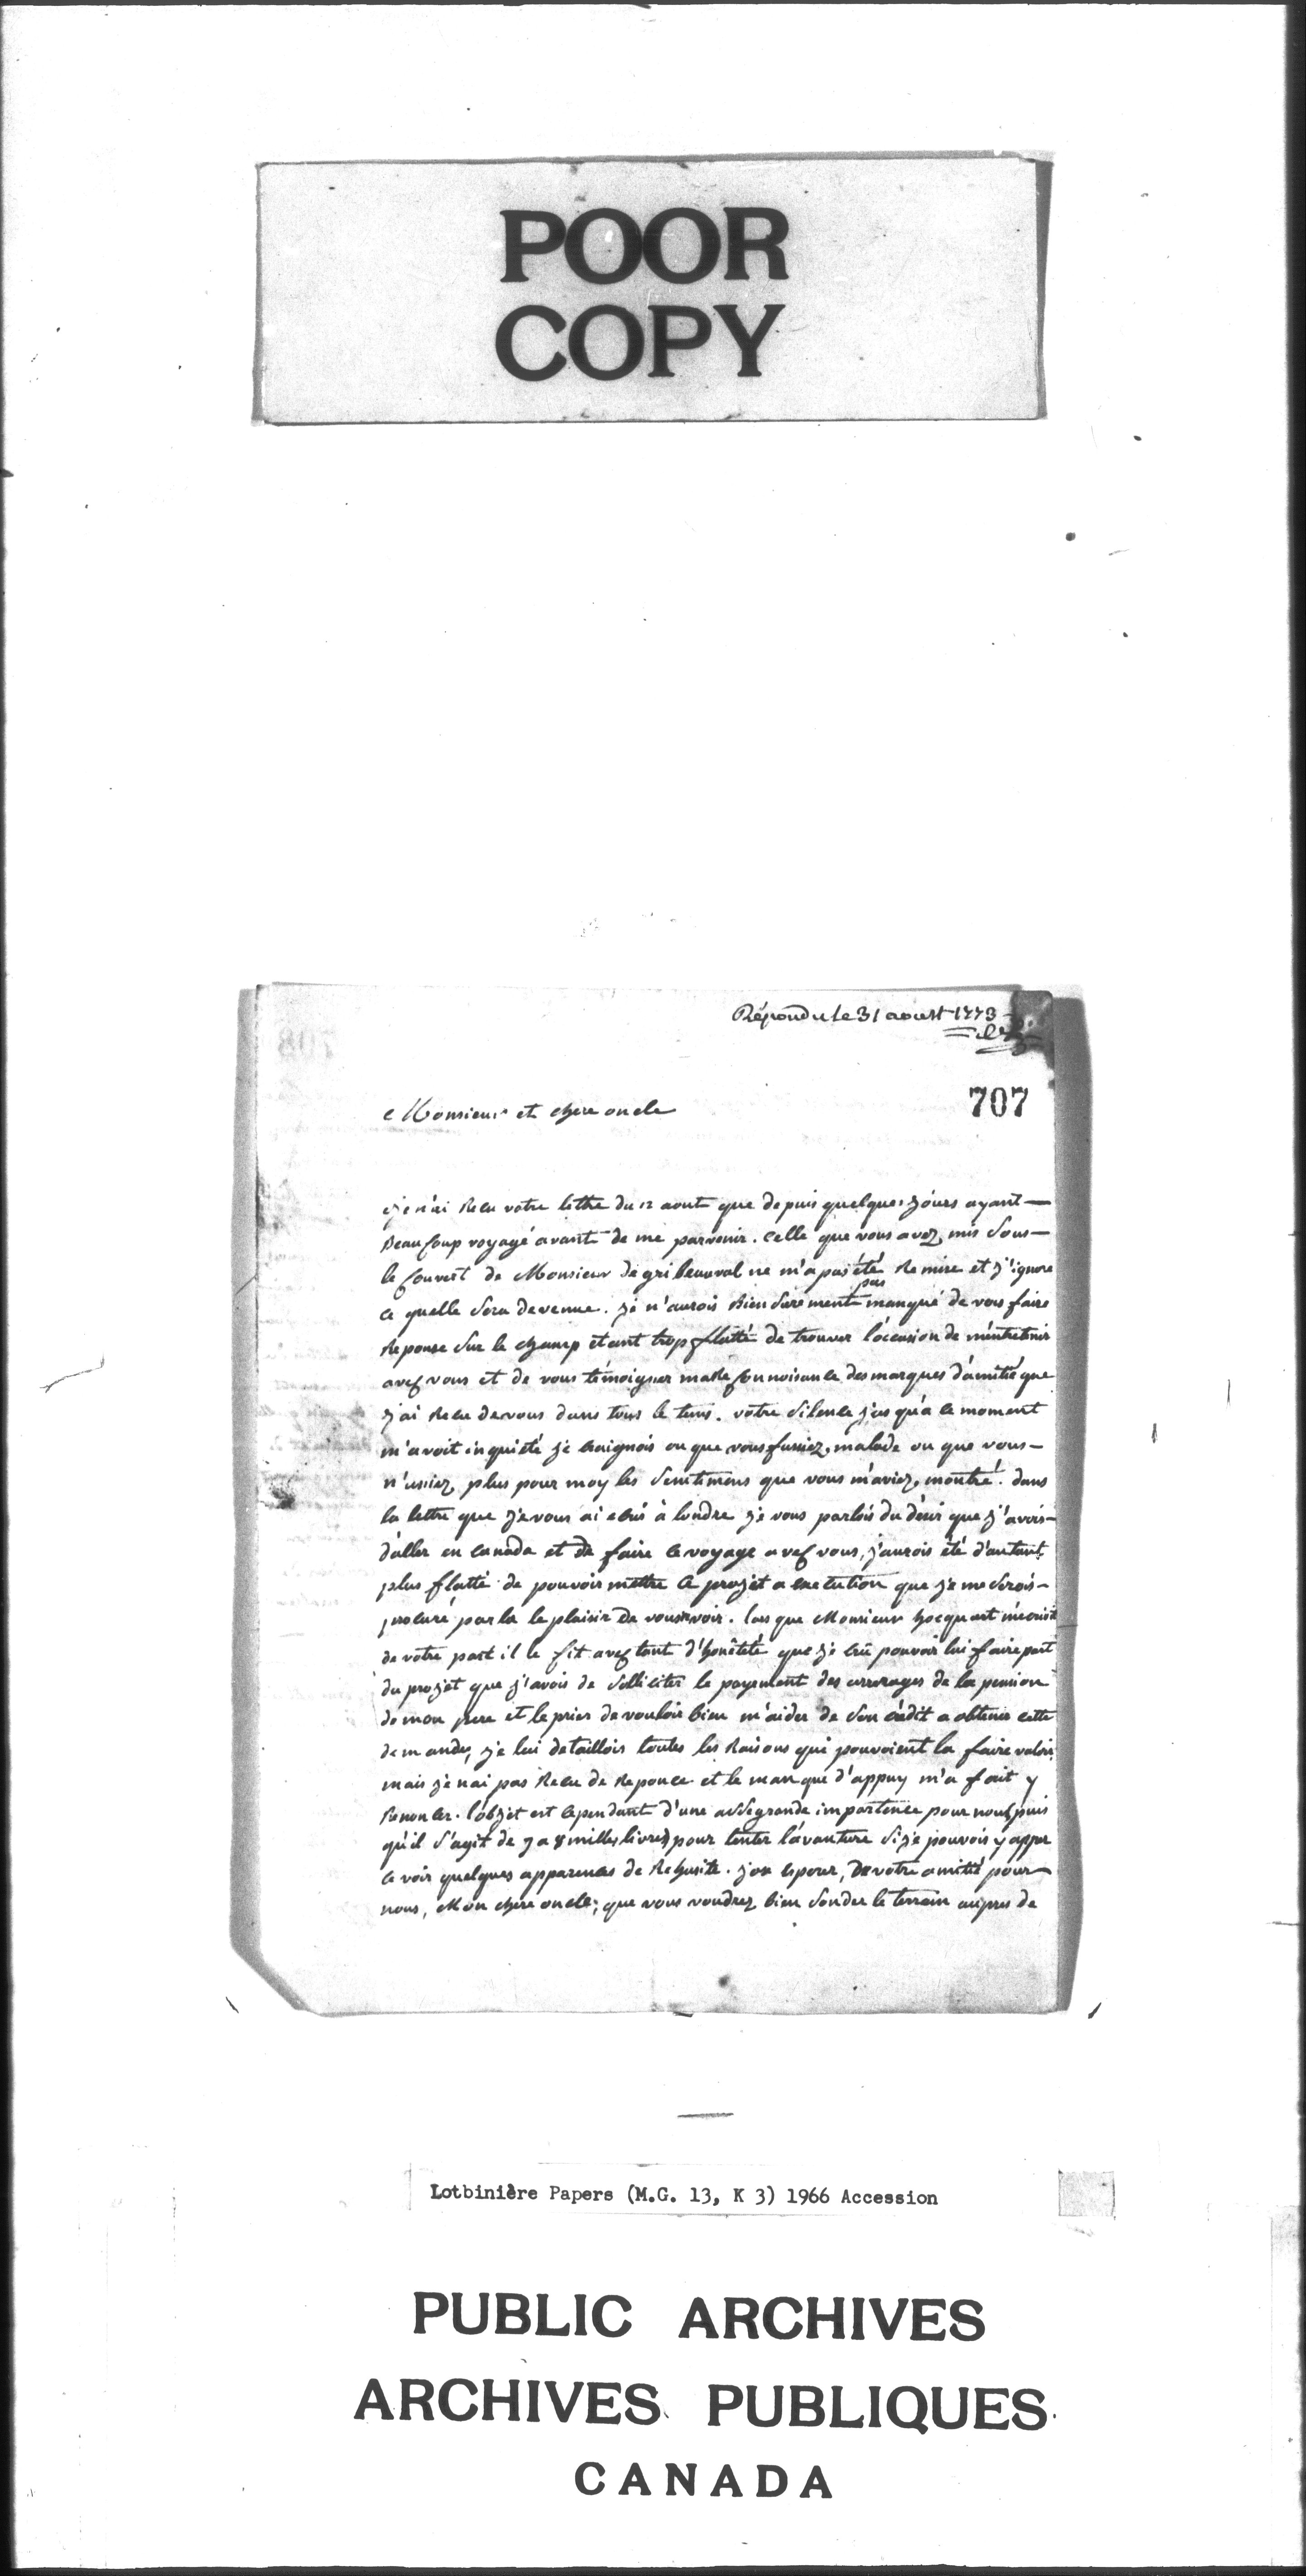 POOR
COPY
Répondu le 31 aoust 1773
707
Monsieur et chere oncle
je n'ai Recu votre lettre du 12 aout que depuis quelques jours ayant
Beaucoup voyagé avant de me parvenir. celle que vous avez mis sous
le couvert de Monsieur de gribeauval ne m'a pas été Remise et j'ignore
ce quelle sera devenue. je n'aurois Bien surement pas manqué de vous faire
Reponse sur le champ etant trop flatté de trouver l'ócasion de m'éntretenir
avec vous et de vous témoigner ma Reconnoisance des marques d'amitié que
j'ai Recu de vous dans tous le tems. votre silence jus qu'a ce moment
m'avoit inquiété je craignois ou que vous fussiez malade ou que vous
n'ussiez plus pour moy les sentimens que vous m'aviez montré. dans
la lettre que je vous ai ecris à londre je vous parlois du désir que j'avois
d'aller en canada et de faire le voyage avec vous, j'aurois été d'autant
plus flatté de pouvoir mettre ce projét a execution que je me serois
procuré par la le plaisir de vous voir. lors que Monsieur hocquart m'écrivit
de votre part il le fit avec tant d'honêteté que je crû pouvoir lui faire part
du projet que j'avois de solliciter le payement des arrerages de la pension
de mon pere et le prier de vouloir bien m'aider de son crédit a obtenir cette
demande, je lui detaillois toutes les Raisons qui pouvoient la faire valoir
mais je n'ai pas Recu de Reponce et le manque d'appuy m'a fait y
Renoncer. l'objet est cependant d'une assés grande importence pour nous puis
qu'il s'agit de 7 a 8 milles livres pour tenter l'avanture si je pouvois y apper
cevoir quelques apparences de Rehusite. j'ose esperer, de votre amitié pour
nous, Mon chere oncle; que vous voudrez bien sonder le terrein aupres de
Lotbinière Papers (M.G. 13, K 3) 1966 Accession
PUBLIC ARCHIVES
ARCHIVES PUBLIQUES
CANADA